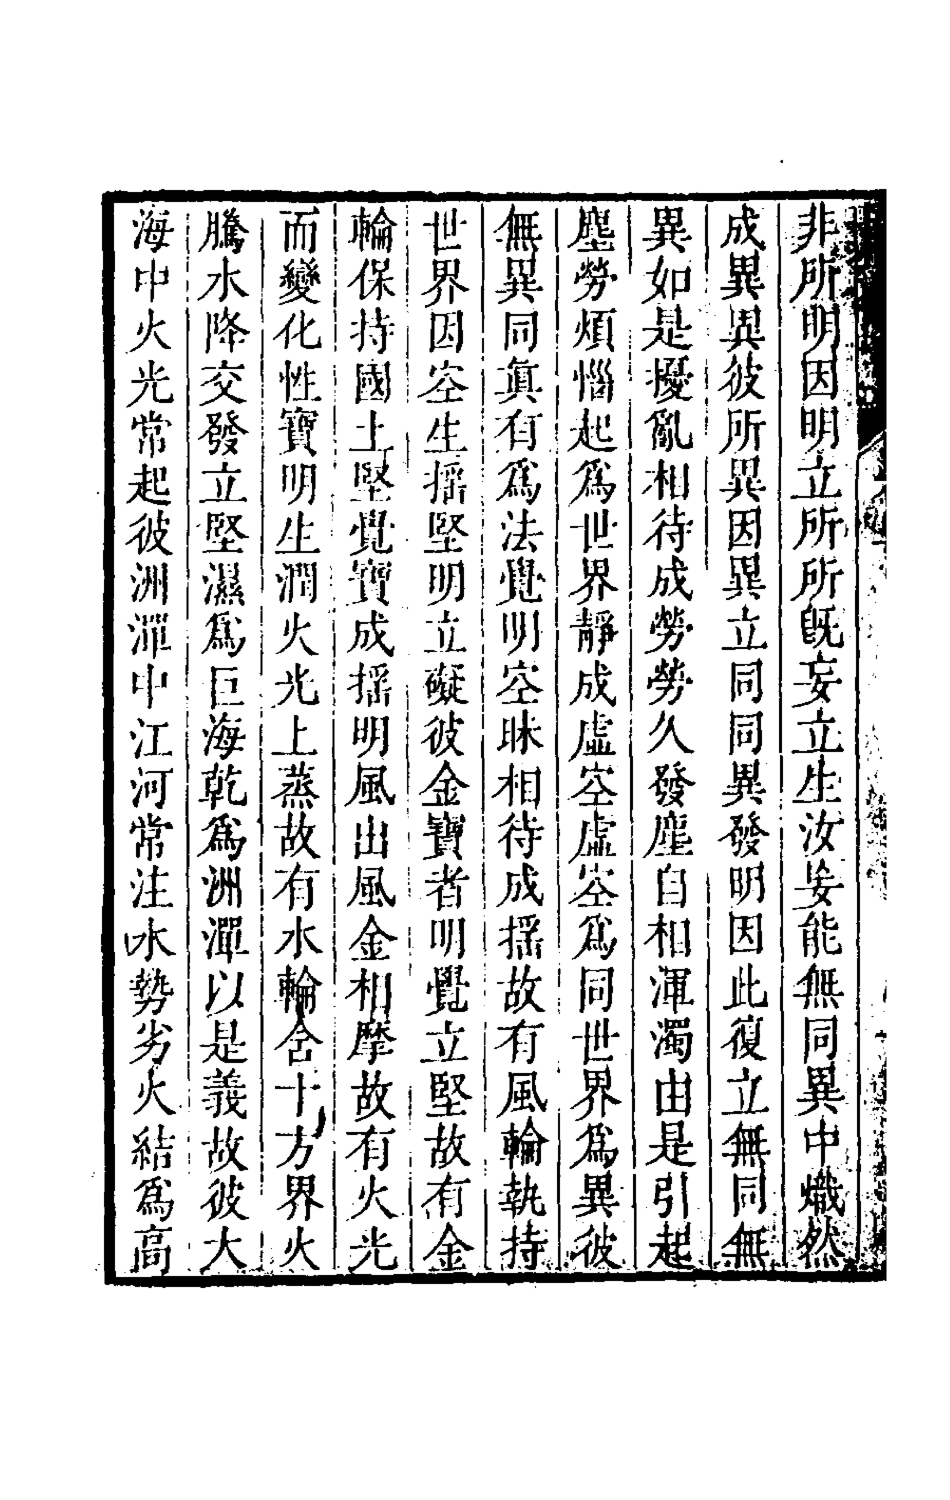 非所明因明立所所旣妄立生汝妄能無同異中熾然
成異異彼所異因異立同同異發明因此復立無同無
異如是擾亂相待成勞勞久發塵自相渾濁由是引起
塵勞煩惱起爲世界靜成虛空虛空爲同世界爲異彼
無異同眞有爲法覺明空昧相待成搖故有風輪執持
世界因空生搖堅明立礙彼金寶者明覺立堅故有金
輪保持國土堅覺寶成搖明風出風金相摩故有火光
而變化性寶明生潤火光上蒸故有水輪含十方界火
騰水降交發立堅濕爲巨海乾爲洲潬以是義故彼大
海中火光常起彼洲潬中江河常注水勢劣火結爲高